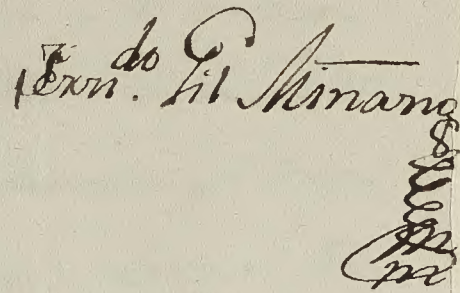 Fern.do Gil Minano